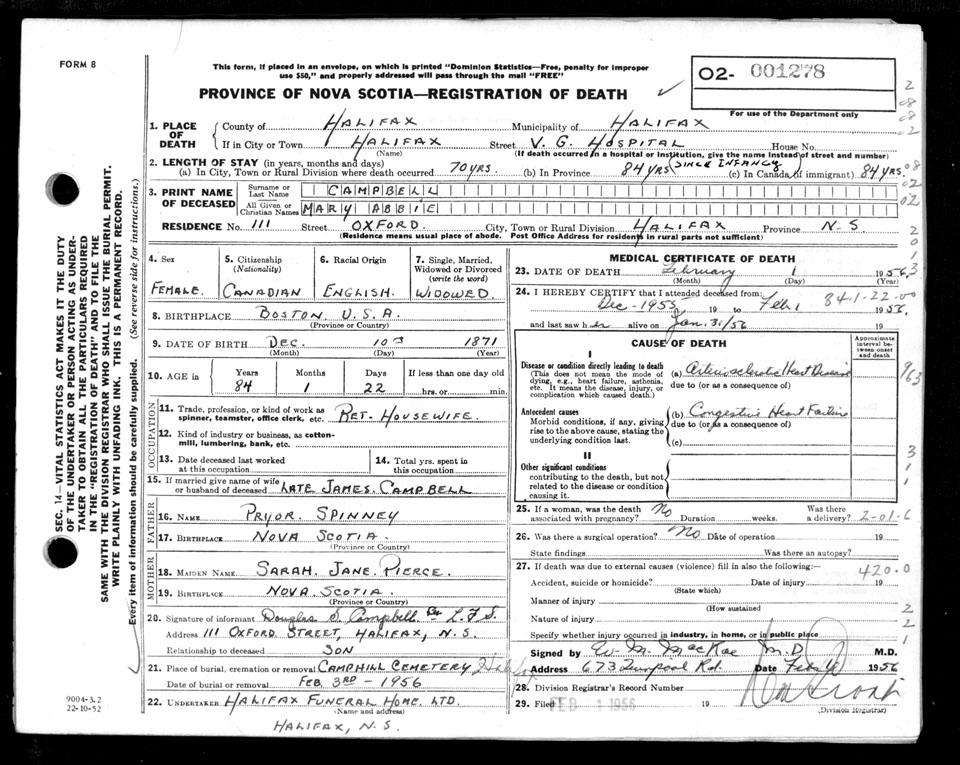 FORM 8
This form, if placed in an envelope, on which is printed "Dominion Statistics—Free, penalty for improper
use $50," and properly addressed will pass through the mail "FREE"
PROVINCE OF NOVA SCOTIA—REGISTRATION OF DEATH
02- 001278
For use of the Department only
1. PLACE OF DEATH County of HALIFAX Municipality of HALIFAX
If in City or Town HALIFAX Street V. G. HOSPITAL House No.
(Name) (If death occurred in a hospital or institution, give the name instead of street and number)
2. LENGTH OF STAY (in years, months and days)
(a) In City, Town or Rural Division where death occurred 70 YRS. (b) In Province 84 YRS (SINCE INFANCY (c) In Canada (if immigrant) 84 YRS.
3. PRINT NAME OF DECEASED Surname or Last Name CAMPBELL
All Given or Christian Names MARY ABBIE
RESIDENCE No. 111 Street OXFORD City, Town or Rural Division HALIFAX Province N.S
(Residence means usual place of abode. Post Office Address for residents in rural parts not sufficient)
SEC. 14—VITAL STATISTICS ACT MAKES IT THE DUTY
OF THE UNDERTAKER OR PERSON ACTING AS UNDER-
TAKER TO OBTAIN ALL THE PARTICULARS REQUIRED
IN THE "REGISTRATION OF DEATH" AND TO FILE THE
SAME WITH THE DIVISION REGISTRAR WHO SHALL ISSUE THE BURIAL PERMIT.
WRITE PLAINLY WITH UNFADING INK. THIS IS A PERMANENT RECORD.
Every item of information should be carefully supplied. (See reverse side for instructions.)
4. Sex FEMALE.
5. Citizenship (Nationality) CANADIAN
6. Racial Origin ENGLISH.
7. Single, Married, Widowed or Divorced (write the word) WIDOWED.
8. BIRTHPLACE BOSTON. U.S.A.
(Province or Country)
9. DATE OF BIRTH Dec. 10 1871
(Month) (Day) (Year)
10. AGE in Years Months Days If less than one day old
84 1 22 hrs. or min.
OCCUPATION
11. Trade, profession, or kind of work as
spinner, teamster, office clerk, etc. RET. HOUSEWIFE.
12. Kind of industry or business, as cotton-
mill, lumbering, bank, etc.
13. Date deceased last worked
at this occupation
14. Total yrs. spent in
this occupation
15. If married give name of wife
or husband of deceased LATE JAMES. CAMPBELL
FATHER
16. NAME PRYOR. SPINNEY
17. BIRTHPLACE NOVA SCOTIA.
(Province or Country)
MOTHER
18. MAIDEN NAME SARAH. JANE. PIERCE.
19. BIRTHPLACE NOVA. SCOTIA.
(Province or Country)
20. Signature of informant Douglas S. Campbell. Per L.F.S.
Address 111 OXFORD. STREET, HALIFAX, N.S.
Relationship to deceased SON
21. Place of burial, cremation or removal CAMPHILL CEMETERY
Date of burial or removal FEB. 3RD - 1956
22. UNDERTAKER HALIFAX FUNERAL HOME. LTD.
(Name and address)
HALIFAX, N.S.
9004-3.2
22-10-52
MEDICAL CERTIFICATE OF DEATH
23. DATE OF DEATH February 1 1956
(Month) (Day) (Year)
24. I HEREBY CERTIFY that I attended deceased from 84-1-22-00
Dec - 1955 19 to Feb 1 1956
and last saw her alive on Jan. 31/56 19
CAUSE OF DEATH
Approximate interval between onset and death
I
Disease or condition directly leading to death
(This does not mean the mode of
dying, e.g., heart failure, asthenia,
etc. It means the disease, injury, or
complication which caused death.)
(a) Arteriosclerotic Heart Disease
due to (or as a consequence of)
Antecedent causes
Morbid conditions, if any, giving
rise to the above cause, stating the
underlying condition last.
(b) Congestive Heart Failure
due to (or as a consequence of)
(c)
II
Other significant conditions
contributing to the death, but not
related to the disease or condition
causing it.
25. If a woman, was the death
associated with pregnancy? No Duration weeks. Was there
a delivery? 2-01-6
26. Was there a surgical operation? No Date of operation 19
State findings Was there an autopsy?
27. If death was due to external causes (violence) fill in also the following:— 420.0
Accident, suicide or homicide? Date of injury 19
(State which)
Manner of injury
(How sustained)
Nature of injury
Specify whether injury occurred in industry, in home, or in public place
Signed by W. M. MacRae M.D. M.D.
Address 673 Liverpool Rd. Date Feb 1956
28. Division Registrar's Record Number
29. Filed FEB 1 1956 19
(Division Registrar)